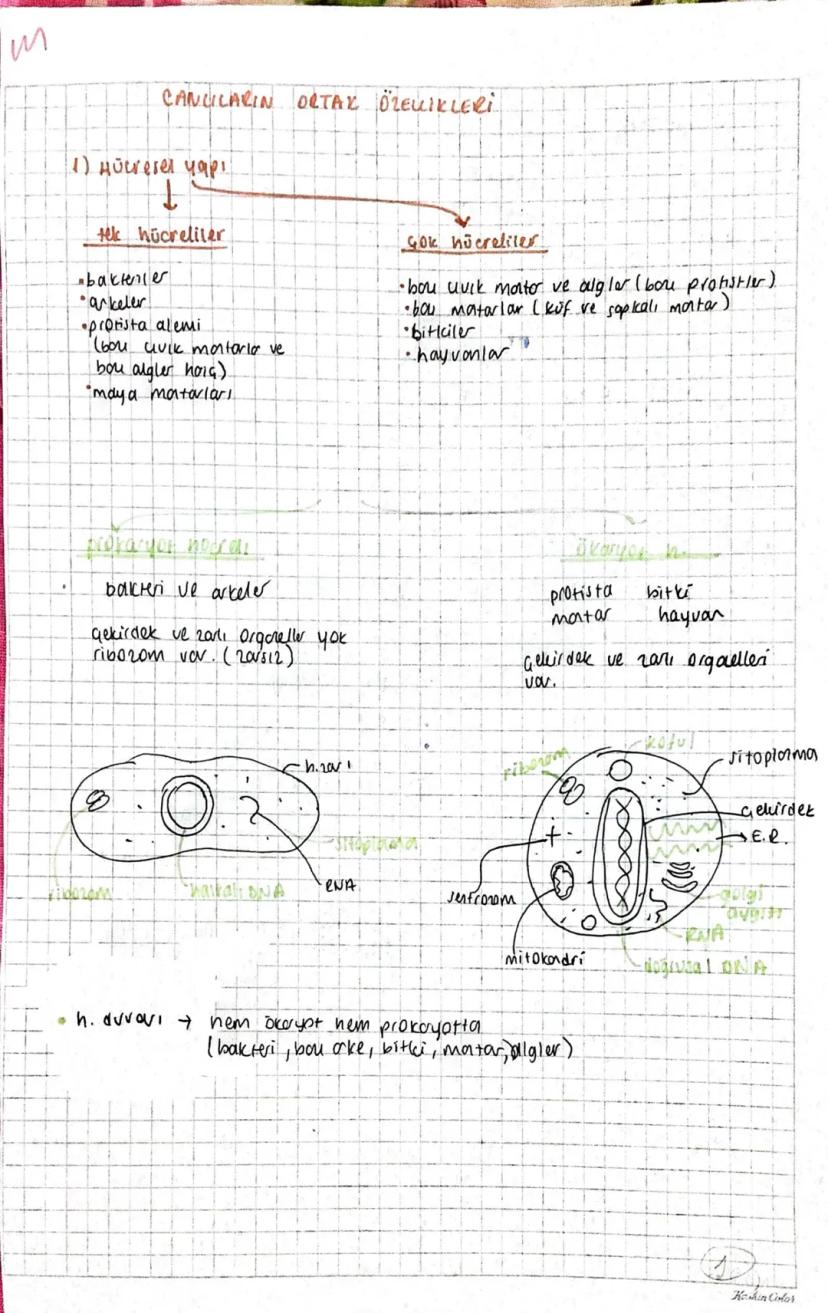 CANLILARIN ORTAK ÖZELLİKLERİ
1) Hücresel yapı
tek hücreliler
çok hücreliler
• bakteriler
• arkeler
• protista alemi
(bazı cıvık mantarlar ve
bazı algler hariç)
• maya mantarları
• bazı cıvık mantar ve algler (bazı protistler)
• bazı mantarlar (küf ve şapkalı mantar)
• bitkiler
• hayvanlar
prokaryot hücreli
ökaryot h.
bakteri ve arkeler
çekirdek ve zarlı organeller yok
ribozom var. (zarsız)
protista bitki
mantar hayvan
çekirdek ve zarlı organelleri
var.
h. zarı
sitoplazma
RNA
halkalı DNA
ribozom
ribozom
koful
sitoplazma
çekirdek
E.R.
golgi
aygıtı
RNA
doğrusal DNA
mitokondri
sentrozom
• h. duvarı → hem ökaryot hem prokaryotta
(bakteri, bazı arke, bitki, mantar, algler)
1